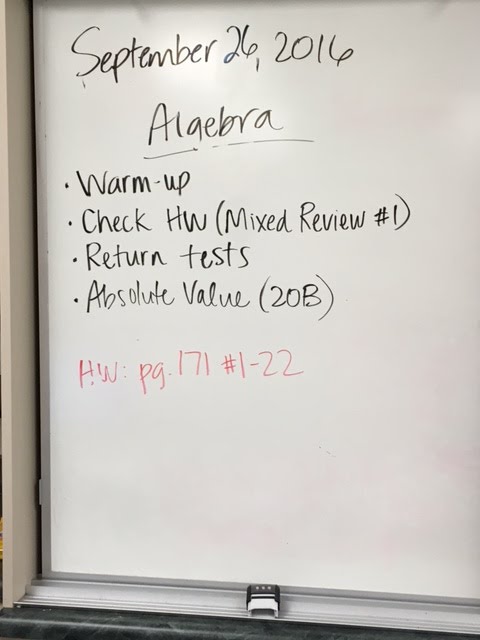 September 26, 2016
Algebra
• Warm-up
• Check HW (Mixed Review #1)
• Return tests
• Absolute Value (20B)
HW: pg. 171 #1-22